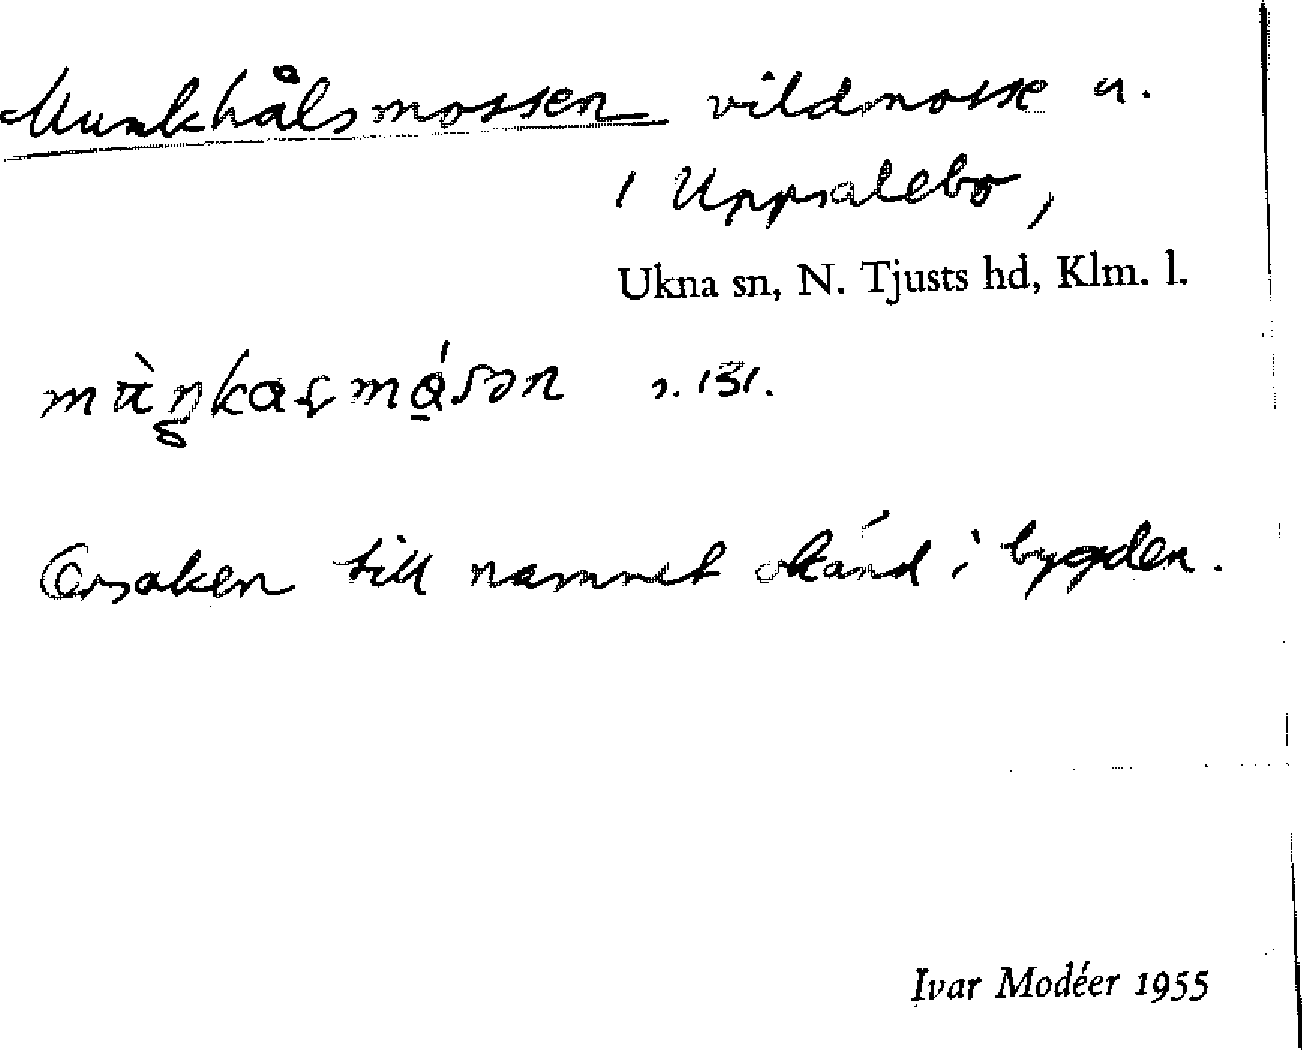 Munkhålsmossen vildmosse n.
1 Uppsalebo,
Ukna sn, N. Tjusts hd, Klm. l.
s. 131.
Orsaken till namnet okänd i bygden.
Ivar Modéer 1955